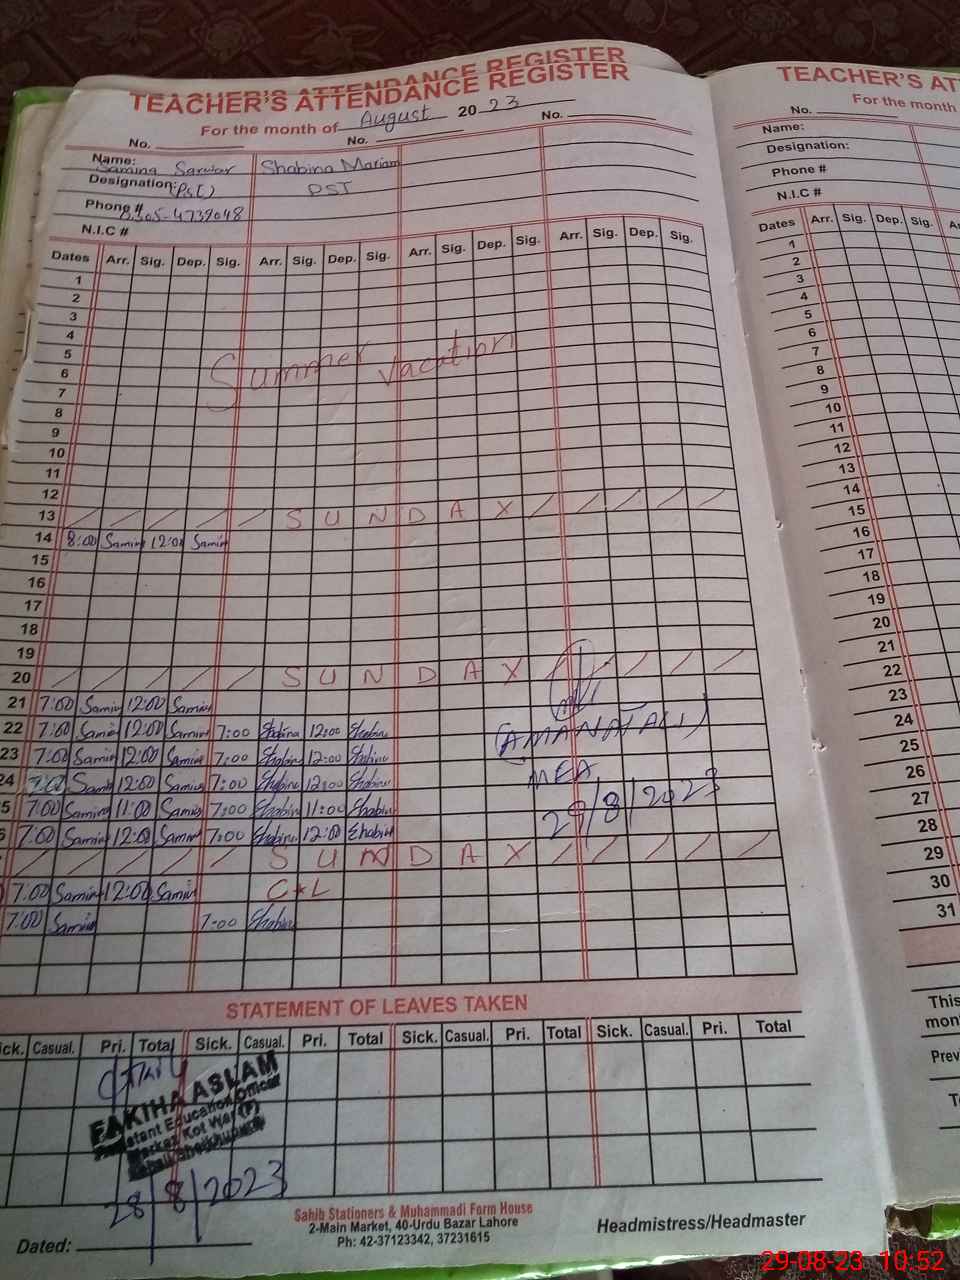 TEACHER'S ATTENDANCE REGISTER
TEACHER'S ATTENDANCE REGISTER
For the month of August 2023
No. No. No.
Name: Samina Sarwar Shabina Mariam
Designation: (PST) PST
Phone # 0305-4739048
N.I.C #
Dates Arr. Sig. Dep. Sig. Arr. Sig. Dep. Sig. Arr. Sig. Dep. Sig. Arr. Sig. Dep. Sig.
1
2
3
4
5
Summer Vacation
6
7
8
9
10
11
12
13 SUNDAY
14 8:00 Samin 12:00 Samin
15
16
17
18
19
20 SUNDAY
21 7:00 Samin 12:00 Samin
22 7:00 Samin 12:00 Samin 7:00 Shabina 12:00 Shabina
(AMANAT ALI)
23 7:00 Samin 12:00 Samin 7:00 Shabina 12:00 Shabina
MEA
24 7:00 Samin 12:00 Samin 7:00 Shabina 12:00 Shabina
29/8/2023
5 7:00 Samin 11:00 Samin 7:00 Shabina 11:00 Shabina
7:00 Samin 12:00 Samin 7:00 Shabina 12:00 Shabina
SUNDAY
7:00 Samin 12:00 Samin C*L
7:00 Samin 7:00 Shabina
STATEMENT OF LEAVES TAKEN
ick. Casual. Pri. Total Sick. Casual. Pri. Total Sick. Casual. Pri. Total Sick. Casual. Pri. Total
FAKIHA ASLAM
Assistant Education Officer
Markaz Kot War (P)
28/8/2023
Sahib Stationers & Muhammadi Form House
2-Main Market, 40-Urdu Bazar Lahore
Ph: 42-37123342, 37231615
Dated:
Headmistress/Headmaster
TEACHER'S AT
For the month
No.
Name:
Designation:
Phone #
N.I.C #
Dates Arr. Sig. Dep. Sig.
1
2
3
4
5
6
7
8
9
10
11
12
13
14
15
16
17
18
19
20
21
22
23
24
25
26
27
28
29
30
31
This
mon
Prev
29-08-23 10:52